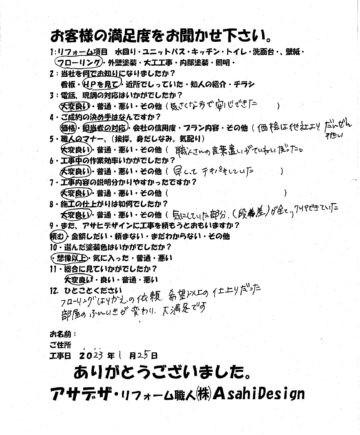 お客様の満足度をお聞かせ下さい。
1:リフォーム項目 水回り・ユニットバス・キッチン・トイレ・洗面台・、壁紙・
フローリング・外壁塗装・大工工事・内部塗装・照明・
2:当社を何でお知りになりましたか?
看板・HPを見て・近所でしていた・知人の紹介・チラシ
3:電話、現調の対応はいかがでしたか?
大変良い・普通・悪い・その他( 気さくなので安心できた )
4:ご成約の決め手はなんですか?
価格・担当者の対応・会社の信用度・プラン内容・その他(価格は他社より だいぶん 安い)
5:職人のマナー、(挨拶、身だしなみ、気配り)
大変良い・普通・悪い・その他( 職人さんの言葉遣い
6・工事中の作業効率いかがでしたか?
大変良い・普通・悪い・その他( テキパキしていた )
7・工事内容の説明分かりやすかったですか?
大変良い・普通・悪い・その他( )
8・施工の仕上がりは如何でしたか?
大変良い・普通・悪い・その他(気にしていた部分、(段差)が できていた
9・また、アサヒデザインに工事を頼もうとおもいますか?
頼む・金額しだい・頼まない・まだわからない・その他
10・選んだ塗装色はいかがでしたか?
・想像以上・気に入った・普通・悪い
11・総合に見ていかがでしたか?
大変良い・良い・普通・悪い
12 ひとことください
フローリングはりかえの依頼 希望以上の仕上りだった
部屋のふんいきが変わり、大満足です
お名前:
ご住所
工事日 2023年1月25日
ありがとうございました。
アサデザ・リフォーム職人㈱AsahiDesign